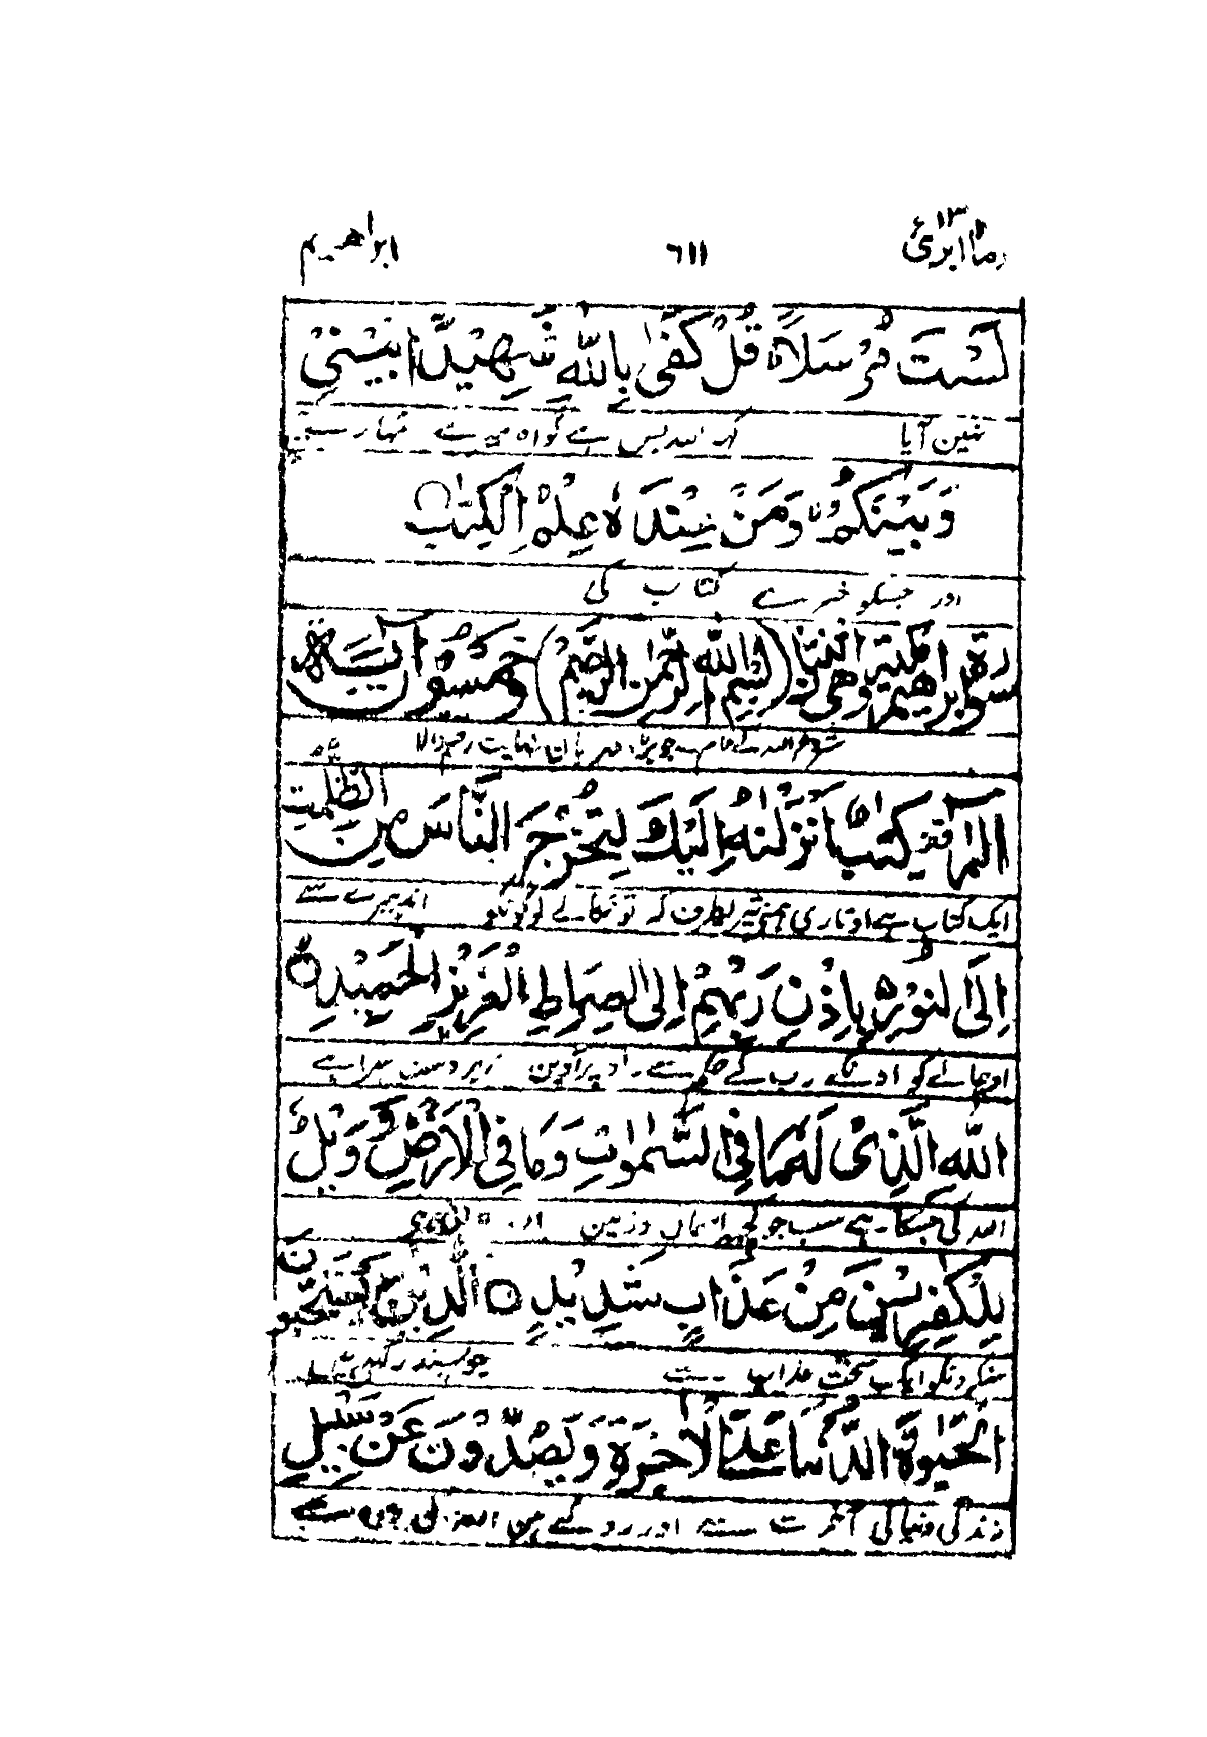 وما ابرئ ١٣ ٦١١ ابراهیم
لَسْتَ مُرْسَلًاؕ قُلْ كَفٰى بِاللّٰهِ شَهِیْدًۢا بَیْنِیْ
نہین آیا کہہ اللہ بس ہے گواہ میرے تمہارے
وَ بَیْنَكُمْۙ وَمَنْ عِنْدَهٗ عِلْمُ الْكِتٰبِ۝
اور جسکو خبر ہے کتاب کی
سورة ابراهیم مکیة وهی اثنتا (بسم الله الرحمن الرحیم) وخمسون آیة
شروع اللہ کے نام سے جو بڑا مہربان نہایت رحم والا
الٓرٰ كِتٰبٌ اَنْزَلْنٰهُ اِلَیْكَ لِتُخْرِجَ النَّاسَ مِنَ الظُّلُمٰتِ
ایک کتاب ہے اوتاری ہمنے تیری طرف کہ تو نکالے لوگونکو اندہیرے سے
اِلَى النُّوْرِ بِاِذْنِ رَبِّهِمْ اِلٰى صِرَاطِ الْعَزِیْزِ الْحَمِیْدِ۝
اوجالے کو اونکے رب کے حکم سے راہ پر اوس زبردست سراہے
اللّٰهِ الَّذِیْ لَهٗ مَا فِی السَّمٰوٰتِ وَمَا فِی الْاَرْضِؕ وَ وَیْلٌ
اللہ کی جسکا ہے سب جو کچھ آسمان و زمین اور
لِّلْكٰفِرِیْنَ مِنْ عَذَابٍ شَدِیْدِ۝ الَّذِیْنَ یَسْتَحِبُّوْنَ
منکرونکو ایک سخت عذاب سے جو پسند رکھتے
الْحَیٰوةَ الدُّنْیَا عَلَى الْاٰخِرَةِ وَیَصُدُّوْنَ عَنْ سَبِیْلِ
زندگی دنیا کی آخرت سے اور روکتے ہین اللہ کی سے